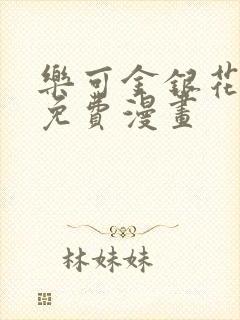 樂可金銀花
免費漫畫
林妹妹